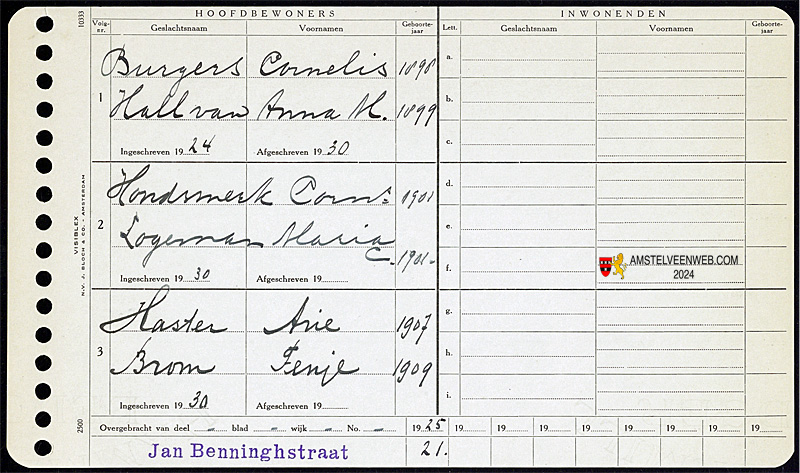 HOOFDBEWONERS INWONENDEN
Volg-nr. Geslachtsnaam Voornamen Geboorte-jaar Lett. Geslachtsnaam Voornamen Geboorte-jaar
10333
Burgers Cornelis 1898 a.
1 Hall van Anna M. 1899 b.
c.
Ingeschreven 1924 Afgeschreven 1930
Hondsmerk Corns 1901 d.
2 Logeman Maria C. -1901- e.
f.
Ingeschreven 1930 Afgeschreven 19
AMSTELVEENWEB.COM
2024
VISIBLEX
N.V. J. BLOCH & CO. - AMSTERDAM
Haster Arie 1907 g.
3 Brom Fenje 1909 h.
i.
Ingeschreven 1930 Afgeschreven 19
2500
Overgebracht van deel „ blad „ wijk „ No. „ 1925 19 19 19 19 19 19 19 19
Jan Benninghstraat 21.